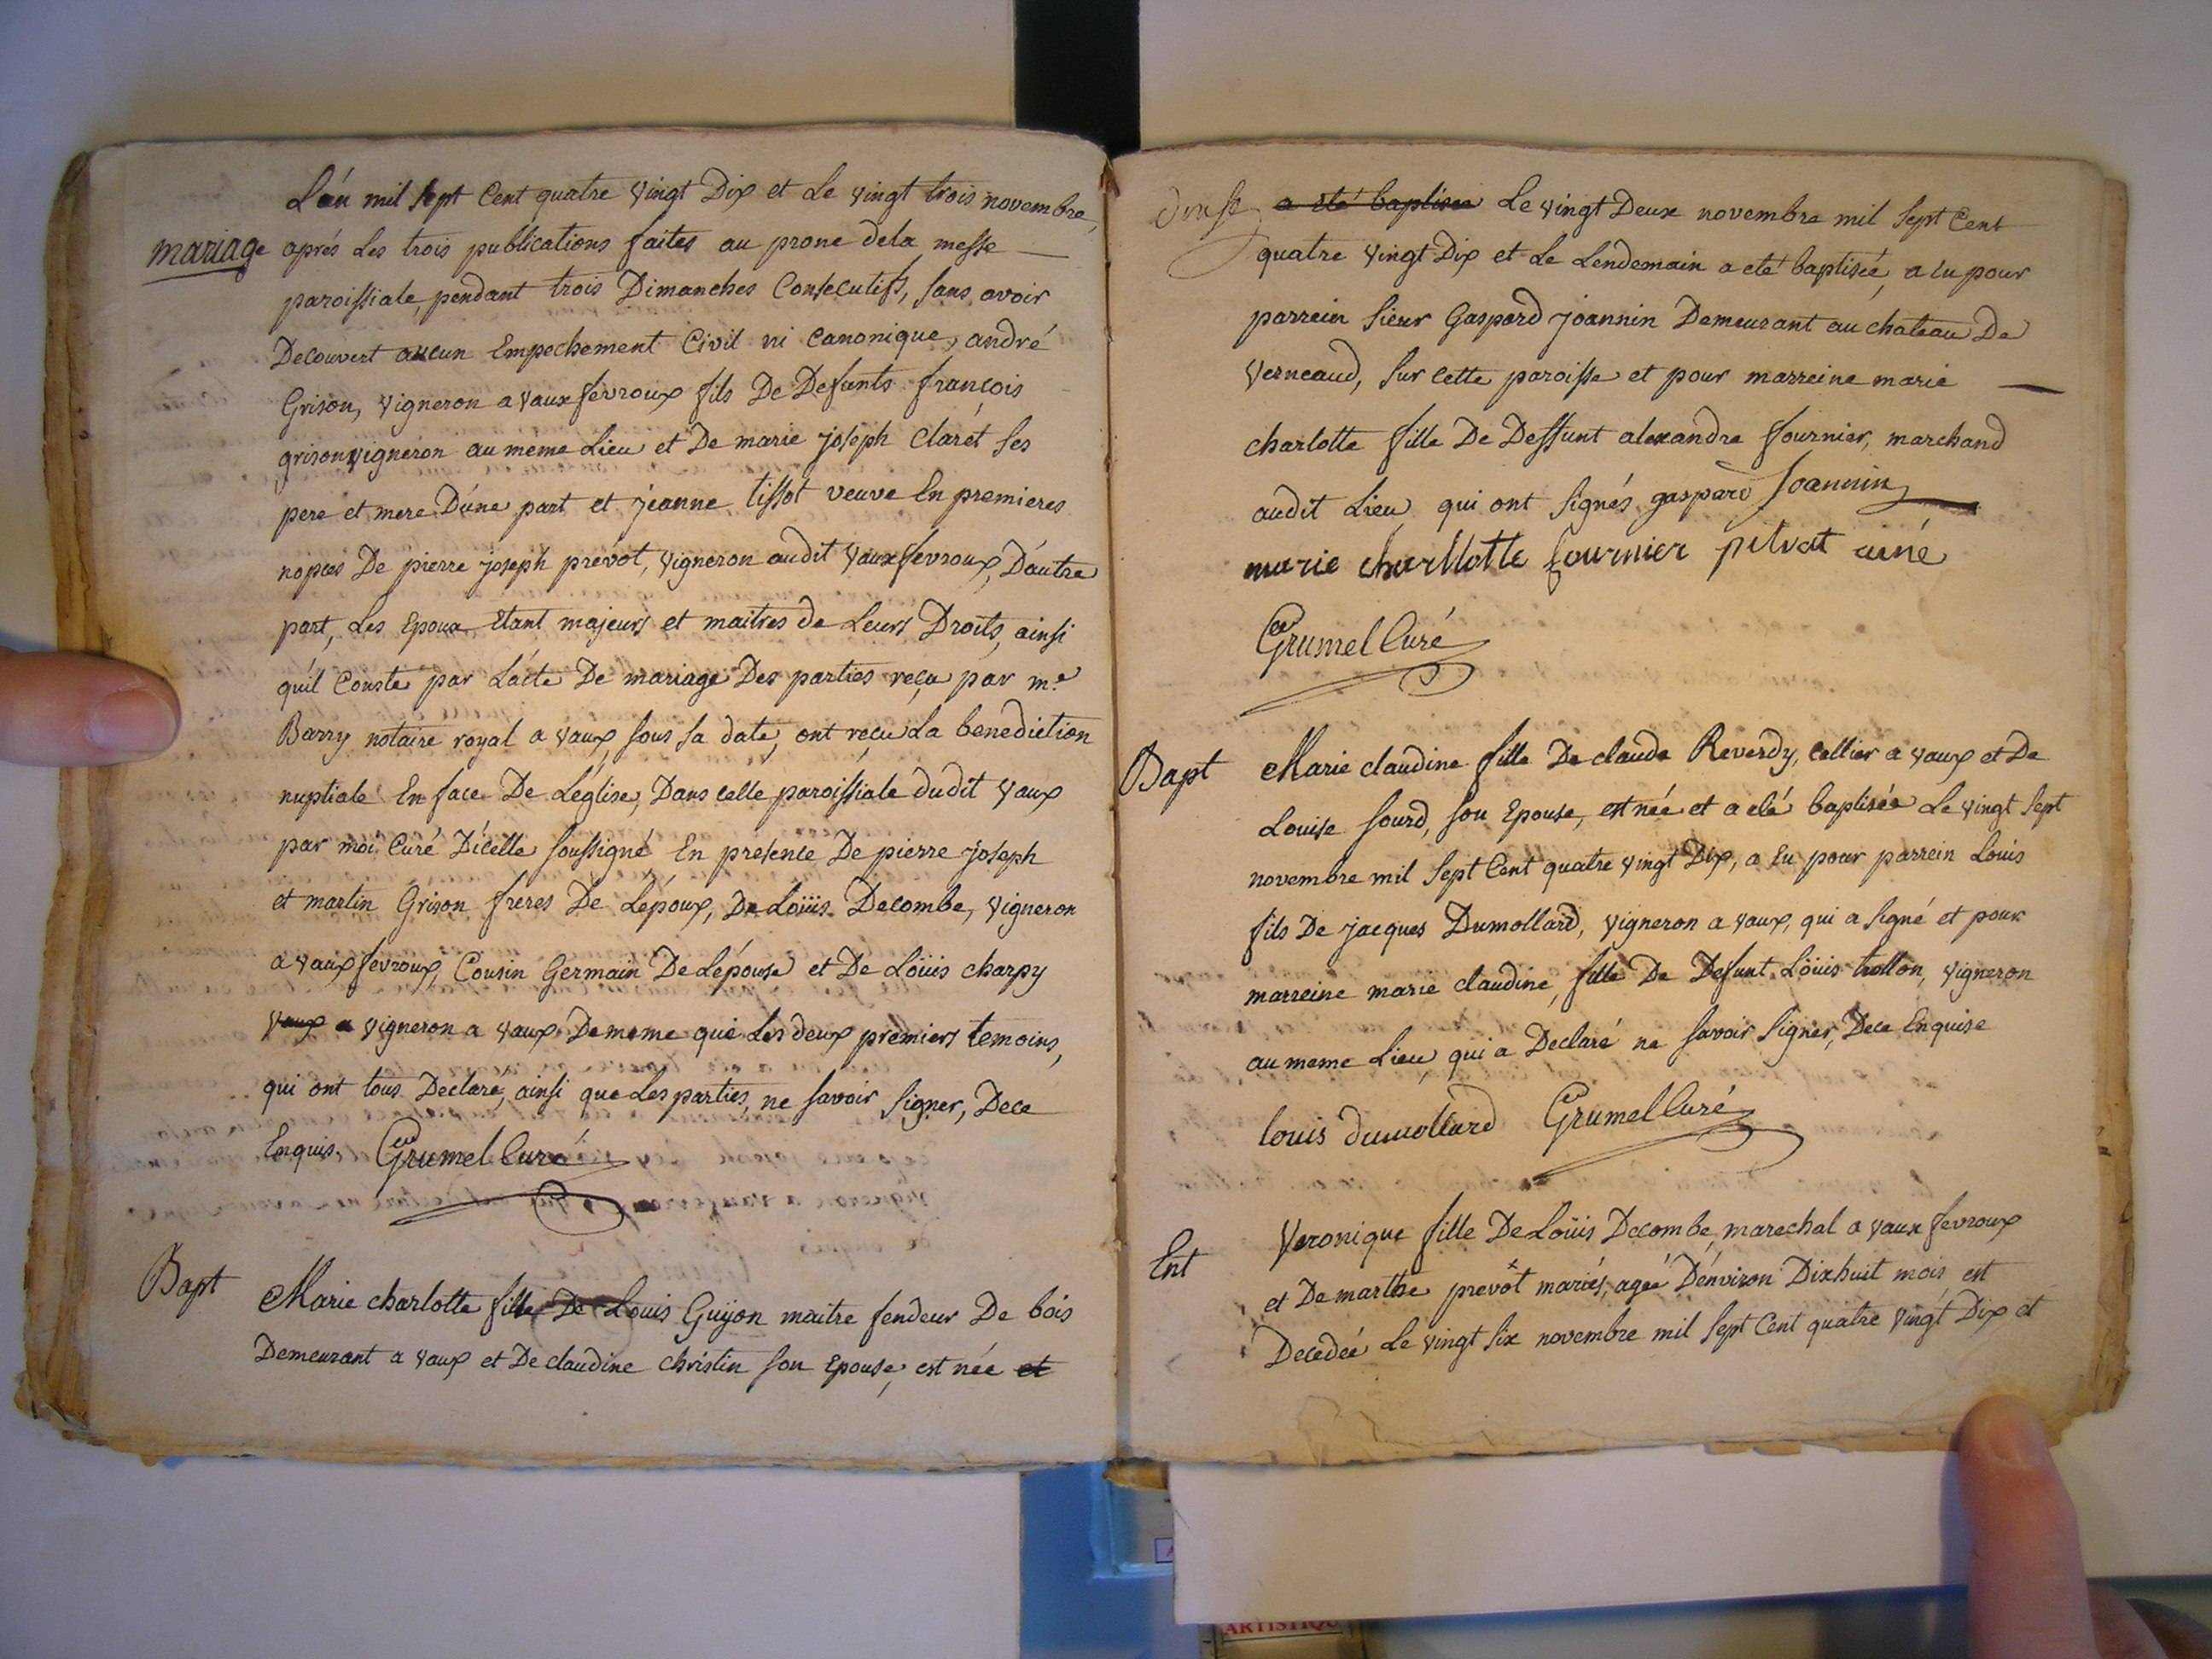 L'an mil sept Cent quatre vingt Dix et Le vingt trois novembre,
mariage aprés Les trois publications faites au prone dela messe
paroissiale, pendant trois Dimanches Consecutifs, sans avoir
Decouvert aucun Empechement Civil ni Canonique, andré
Grison, vigneron a vaux fevroux fils De Defunts françois
grison vigneron au meme Lieu et De marie joseph Claret ses
pere et mere D'úne part et jeanne tissot veuve En premieres
nopces De pierre joseph prevot, vigneron audit vaux fevroux, D'autre
part, Les Epoux Etant majeurs et maitres de Leurs Droits, ainsi
qu'il Conste par L'acte De mariage Des parties reçu par m.e
Barry notaire royal a vaux, sous sa date, ont reçu La benediction
nuptiale En face De L'église, Dans celle paroissiale dudit vaux
par moi Curé D'icelle soussigné En presence De pierre joseph
et martin Grison freres De L'époux, De Loüis Decombe, vigneron
a vaux fevroux, Cousin Germain De L'épouse et De Loüis charpy
vaux a vigneron a vaux De meme que Les deux premiers temoins,
qui ont tous Declaré, ainsi que Les parties, ne savoir signer, De ce
Enquis. Grumel Curé
Bapt Marie charlotte fille De Louis Guÿon maitre fendeur De bois
Demeurant a vaux et De claudine christin son Epouse, est née et
a eté baptisée Le vingt Deux novembre mil sept Cent
quatre vingt Dix et Le Lendemain a eté baptisée, a eu pour
parrein sieur Gaspard joannin Demeurant au chateau De
verneaud, sur cette paroisse et pour marreine marie
charlotte fille De Deffunt alexandre fournier, marchand
audit Lieu qui ont signés gaspard Joannin
marie charllotte fournier pelvat ainé
Grumel Curé
Bapt Marie claudine fille De claude Reverdy, cellier a vaux et De
Louise sourd, son Epouse, est née et a eté baptisée Le vingt sept
novembre mil sept Cent quatre vingt Dix, a Eu pour parrein Louis
fils De jacques Dumollard, vigneron a vaux, qui a signé et pour
marreine marie claudine, fille De Defunt Loüis trollon, vigneron
au meme Lieu qui a Declaré ne savoir signer, De ce Enquise
louis dumollard Grumel Curé
Ent Veronique fille De Loüis Decombe, marechal a vaux fevroux
et De marthe prevôt mariés, ageé D'énviron Dixhuit mois est
Decedeé Le vingt six novembre mil sept Cent quatre vingt Dix et
ARTISTIQU